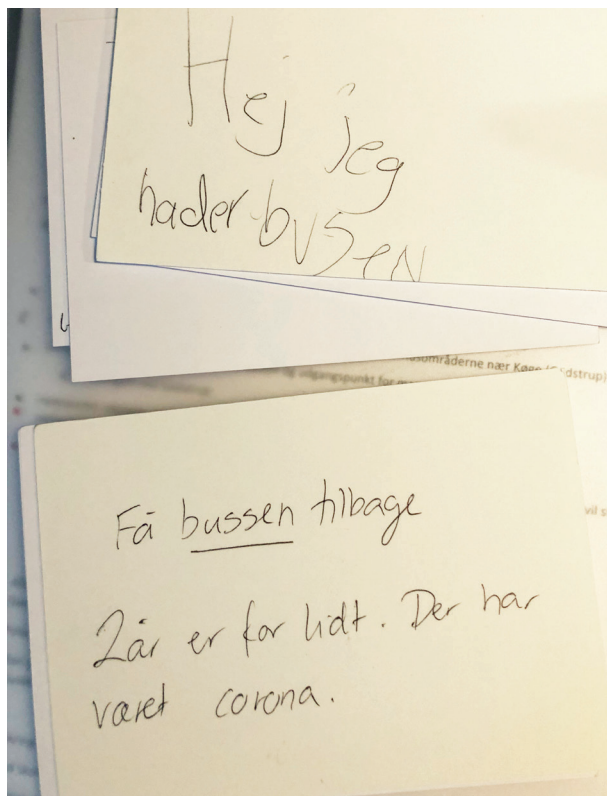 Hej jeg
hader busen
områderne nær Køge
udgangspunkt for
Få bussen tilbage
2 år er for lidt. Der har
været corona.
vil s